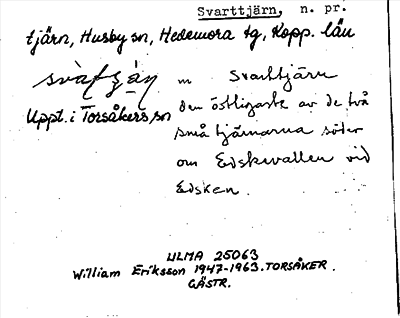 Svarttjärn, n. pr.
tjärn, Husby sn, Hedemora tg, Kopp. län
m Svarttjärn
Uppt. i Torsåkers sn
den östligaste av de två
små tjärnarna söder
om Edskevallen vid
Edsken.
ULMA 25063
William Eriksson 1947-1963. TORSÅKER.
GÄSTR.